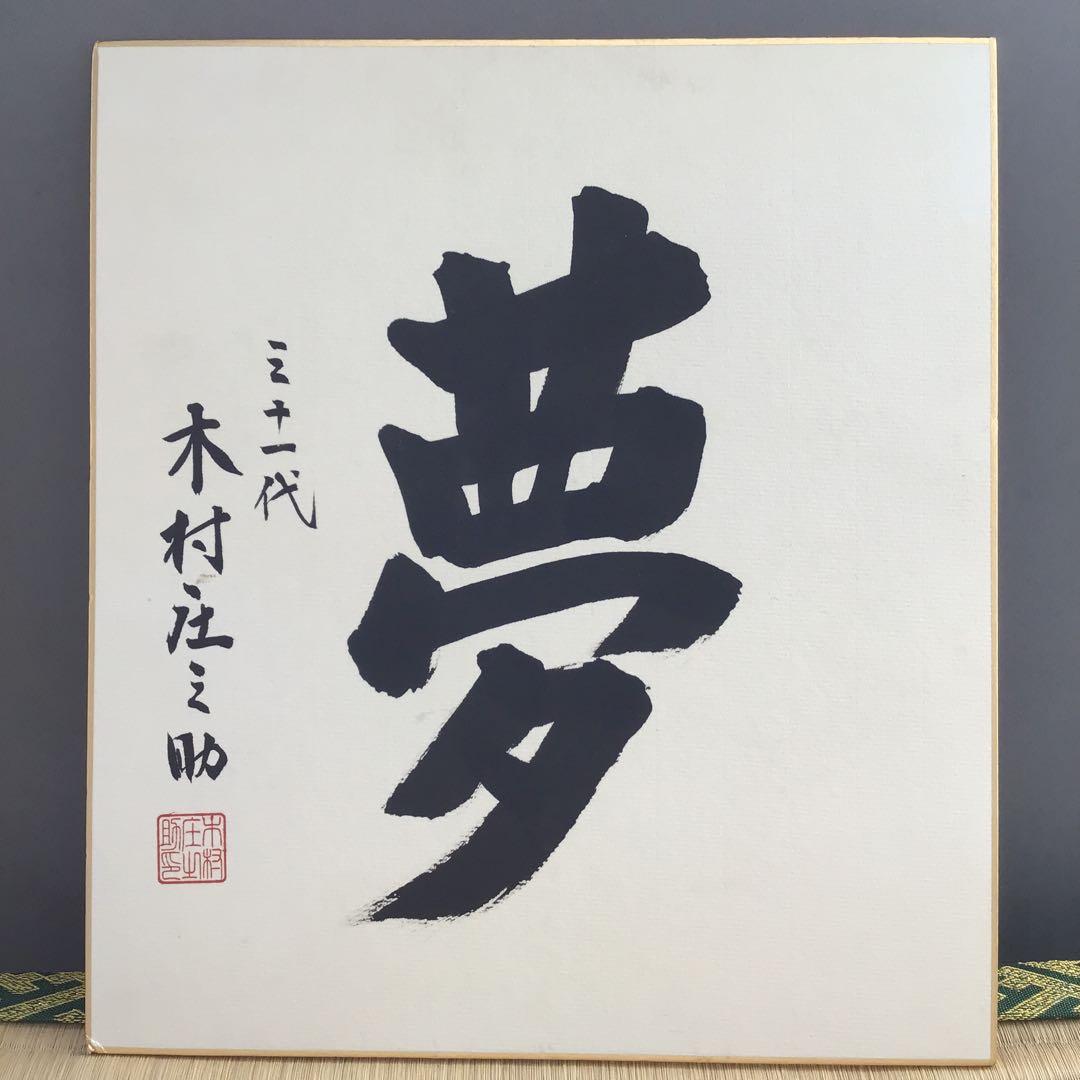 夢
三十一代
木村庄之助
木村
庄之
助印